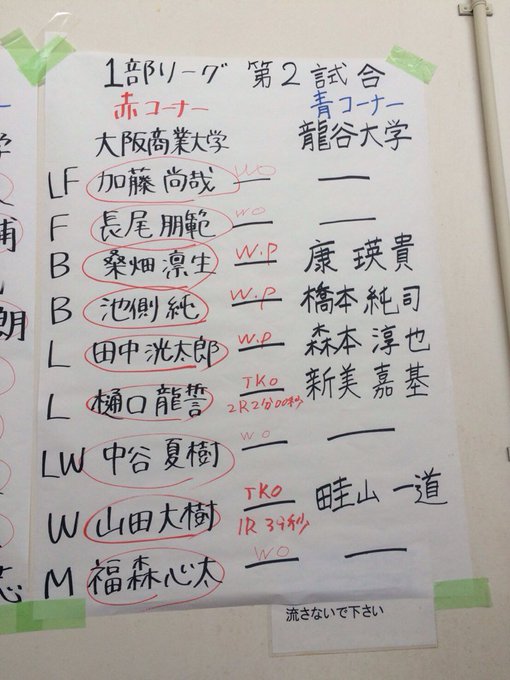 1部リーグ 第2試合
赤コーナー 青コーナー
大阪商業大学 龍谷大学
LF 加藤 尚哉 WO —
F 長尾 朋範 WO —
B 桑畑 凛生 W.P 康 瑛貴
B 池側 純 W.P 橋本 純司
L 田中 洸太郎 W.P 森本 淳也
L 樋口 龍誓 TKO 新美 嘉基
2R2分00秒
LW 中谷 夏樹 WO —
W 山田 大樹 TKO 畦山 一道
1R 39秒
M 福森 心太 WO —
流さないで下さい
朗